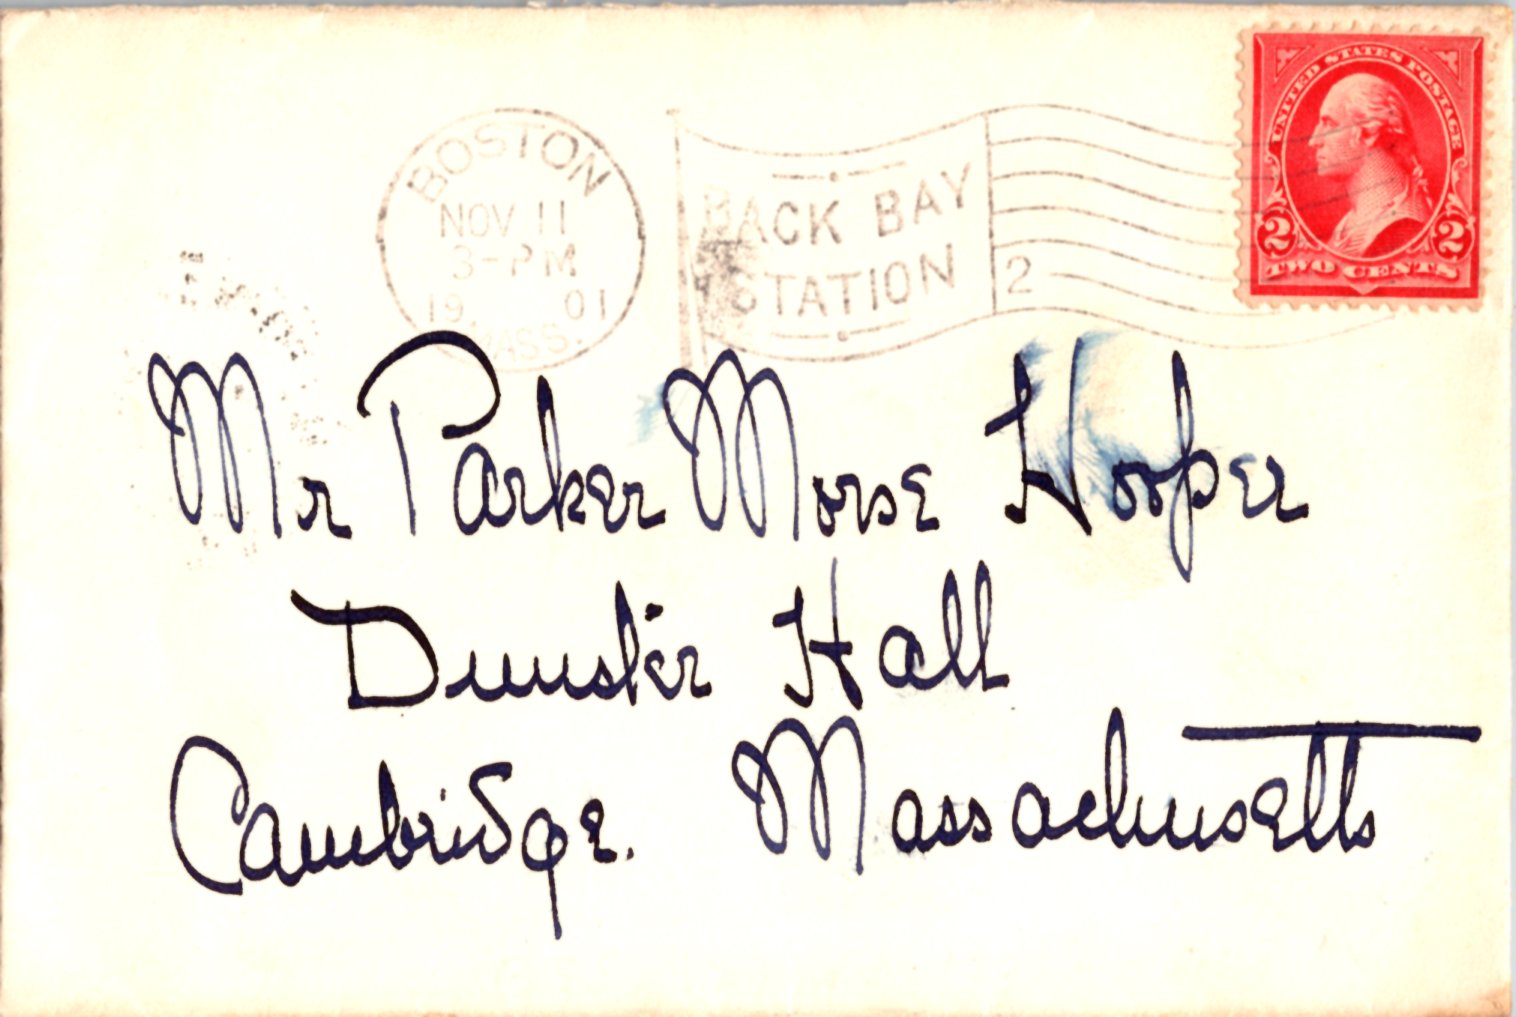 UNITED STATES POSTAGE
2 2
TWO CENTS
BOSTON
NOV 11
3-PM
19 01
MASS.
BACK BAY
STATION
2
Mr Parker Morse Hooper
Dunster Hall
Cambridge. Massachusetts